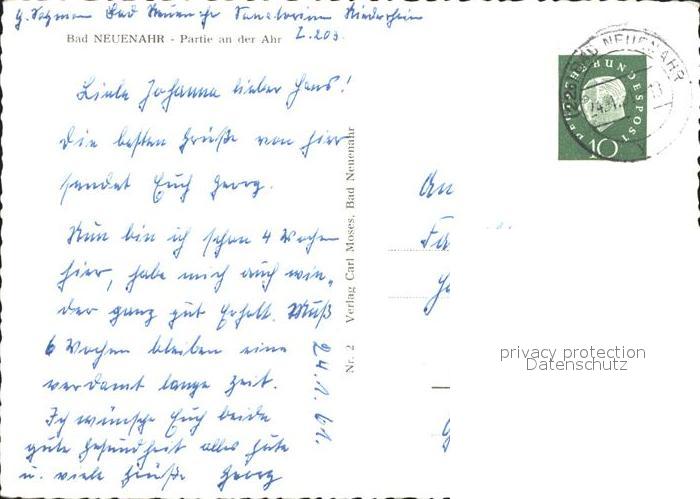 Bad Neuenahr Sanatorium Niederrhein
Z. 209.
Bad NEUENAHR - Partie an der Ahr
Liebe Johanna lieber Hans!
Die besten Grüße von hier
sendet Euch Georg.
Nun bin ich schon 4 Wochen
hier, habe mich auch wie-
der ganz gut erholt. Muß
6 Wochen bleiben eine
verdamt lange Zeit.
Ich wünsche Euch beide
gute Gesundheit alles Gute
u. viele Grüße Georg
24.1.61.
Nr. 2 Verlag Carl Moses, Bad Neuenahr
BAD NEUENAHR
DEUTSCHE BUNDESPOST
10
An
Fa
privacy protection
Datenschutz